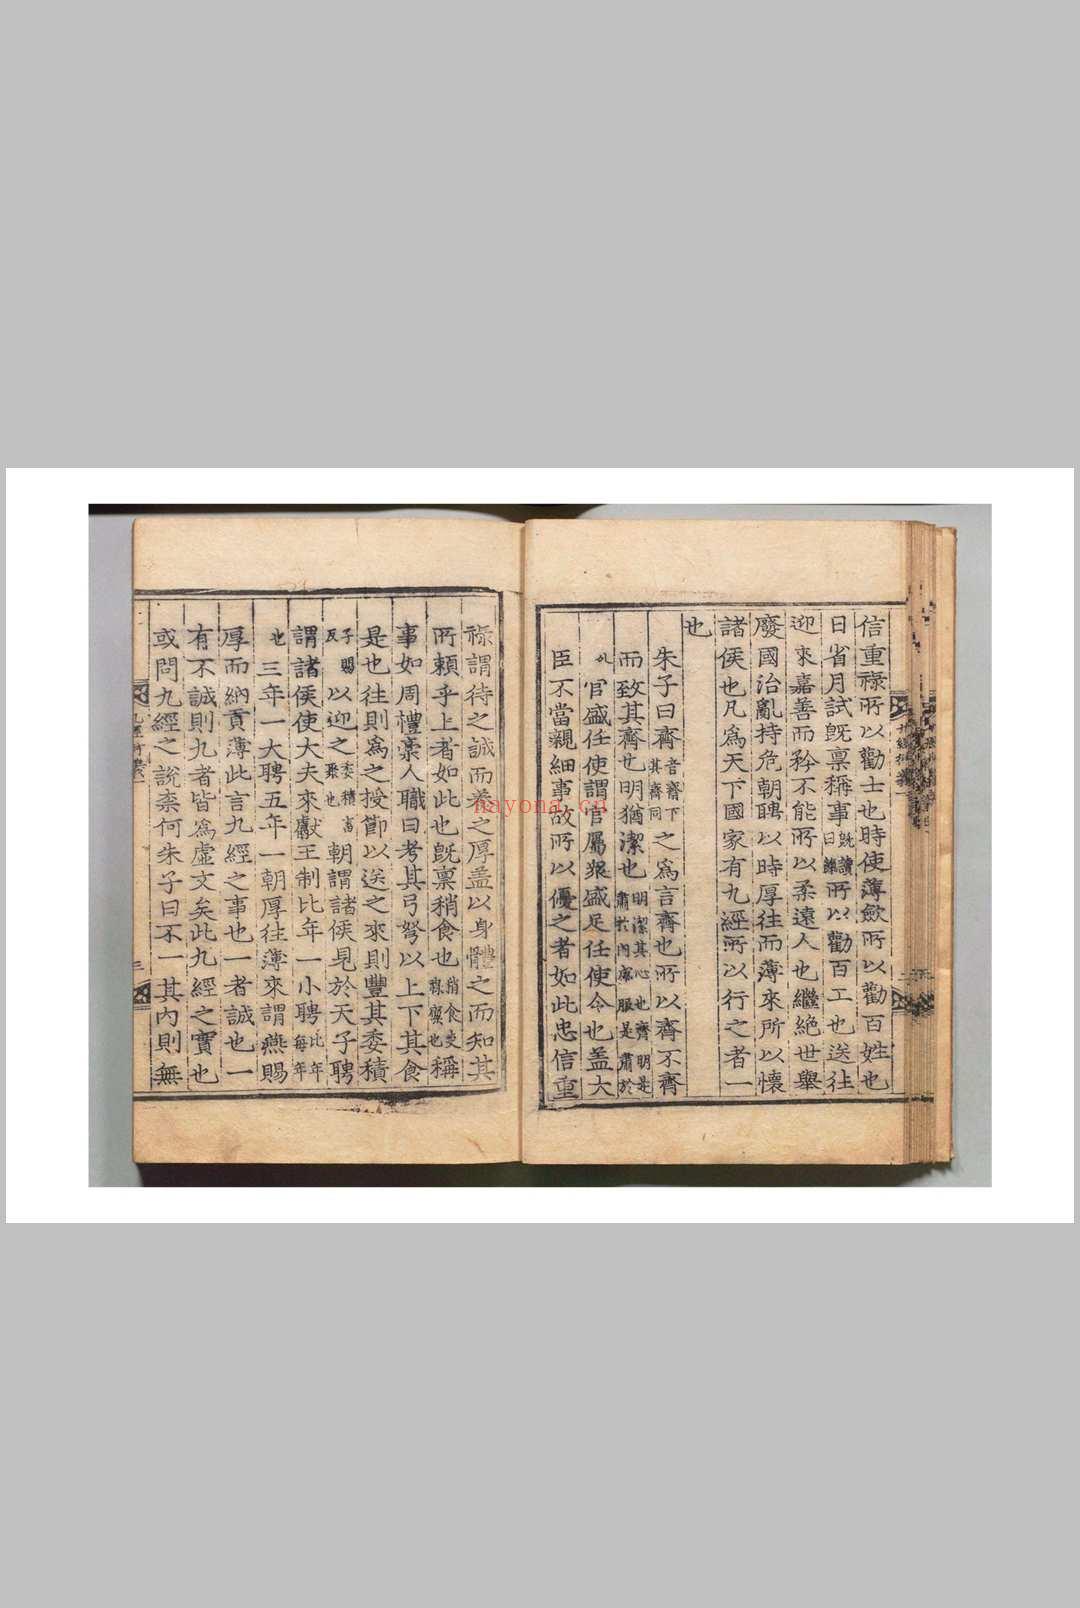 信重祿所以勸士也時使薄斂所以勸百姓也
日省月試既稟稱事
既讀
曰餼
所以勸百工也送往
迎來嘉善而矜不能所以柔遠人也繼絶世舉
廢國治亂持危朝聘以時厚往而薄來所以懷
諸侯也凡爲天下國家有九經所以行之者一
也
朱子曰齊
音齋下
其齊同
之爲言齊也所以齊不齊
而致其齊也明猶潔也
明潔其心也齊明是
肅於內
服是肅於
外
官盛任使謂官屬衆盛足任使令也盖大
臣不當親細事故所以優之者如此忠信重
祿謂待之誠而養之厚盖以身體之而知其
所賴乎上者如此也既稟稍食也
稍食
也
稱
事如周禮稾人職曰考其弓弩以上下其食
是也往則爲之授節以送之來則豐其委積
子賜
反
以迎之
委積畜
聚也
朝謂諸侯見於天子聘
謂諸侯使大夫來獻王制比年一小聘
比年
每年
也
三年一大聘五年一朝厚往薄來謂燕賜
厚而納貢薄此言九經之事也一者誠也一
有不誠則九者皆爲虛文矣此九經之實也
或問九經之說柰何朱子曰不一其內則無
三
nayona.cn